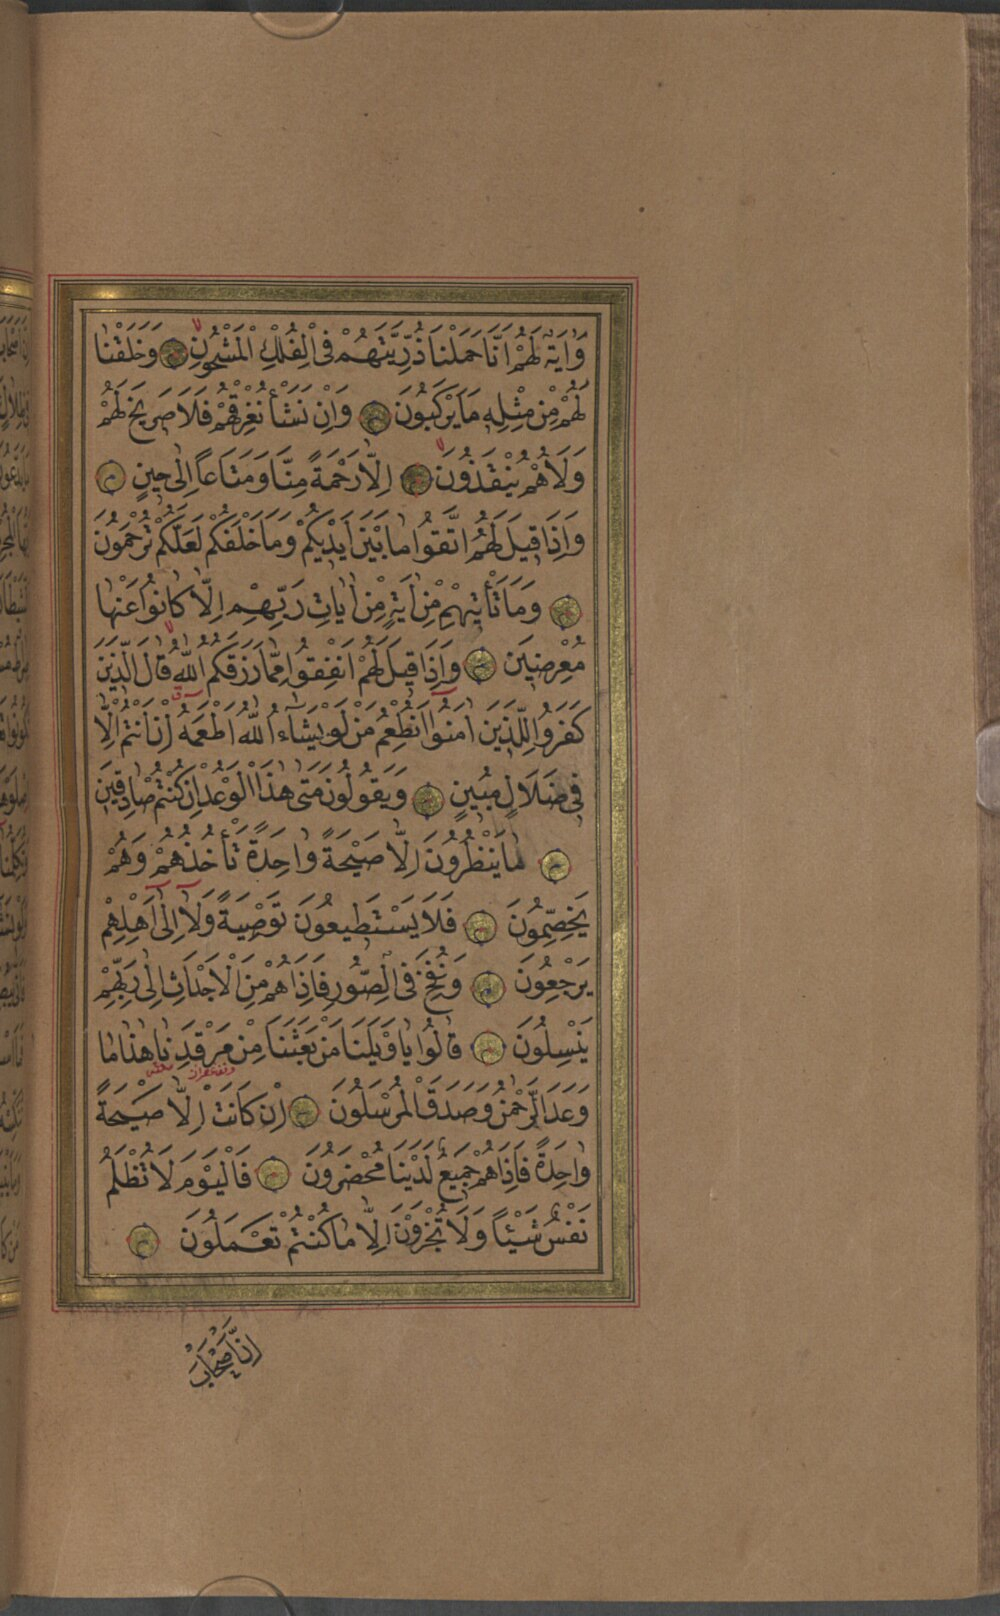 وَاٰيَةٌ لَهُمْ اَنَّا حَمَلْنَا ذُرِّيَّتَهُمْ فِى الْفُلْكِ الْمَشْحُونِ وَخَلَقْنَا
لَهُمْ مِنْ مِثْلِهِ مَا يَرْكَبُونَ وَاِنْ نَشَأْ نُغْرِقْهُمْ فَلَا صَرِيخَ لَهُمْ
وَلَا هُمْ يُنْقَذُونَ اِلَّا رَحْمَةً مِنَّا وَمَتَاعًا اِلٰى حِينٍ
وَاِذَا قِيلَ لَهُمُ اتَّقُوا مَا بَيْنَ اَيْدِيكُمْ وَمَا خَلْفَكُمْ لَعَلَّكُمْ تُرْحَمُونَ
وَمَا تَأْتِيهِمْ مِنْ اٰيَةٍ مِنْ اٰيَاتِ رَبِّهِمْ اِلَّا كَانُوا عَنْهَا
مُعْرِضِينَ وَاِذَا قِيلَ لَهُمْ اَنْفِقُوا مِمَّا رَزَقَكُمُ اللّٰهُ قَالَ الَّذِينَ
كَفَرُوا لِلَّذِينَ اٰمَنُوا اَنُطْعِمُ مَنْ لَوْ يَشَاءُ اللّٰهُ اَطْعَمَهُ اِنْ اَنْتُمْ اِلَّا
فِى ضَلَالٍ مُبِينٍ وَيَقُولُونَ مَتٰى هٰذَا الْوَعْدُ اِنْ كُنْتُمْ صَادِقِينَ
مَا يَنْظُرُونَ اِلَّا صَيْحَةً وَاحِدَةً تَأْخُذُهُمْ وَهُمْ
يَخِصِّمُونَ فَلَا يَسْتَطِيعُونَ تَوْصِيَةً وَلَا اِلٰى اَهْلِهِمْ
يَرْجِعُونَ وَنُفِخَ فِى الصُّورِ فَاِذَا هُمْ مِنَ الْاَجْدَاثِ اِلٰى رَبِّهِمْ
يَنْسِلُونَ قَالُوا يَا وَيْلَنَا مَنْ بَعَثَنَا مِنْ مَرْقَدِنَا هٰذَا مَا
وَعَدَ الرَّحْمٰنُ وَصَدَقَ الْمُرْسَلُونَ اِنْ كَانَتْ اِلَّا صَيْحَةً
وَاحِدَةً فَاِذَا هُمْ جَمِيعٌ لَدَيْنَا مُحْضَرُونَ فَالْيَوْمَ لَا تُظْلَمُ
نَفْسٌ شَيْئًا وَلَا تُجْزَوْنَ اِلَّا مَا كُنْتُمْ تَعْمَلُونَ
اِنَّ اَصْحَابَ